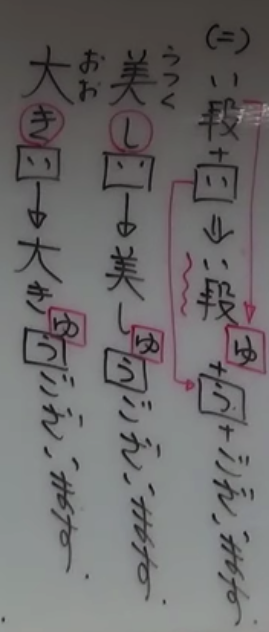 (二) い段+い⇒い段ゆ+う+ございます
美しい→美しゆうございます.
うつく
大きい→大きゆうございます.
おお